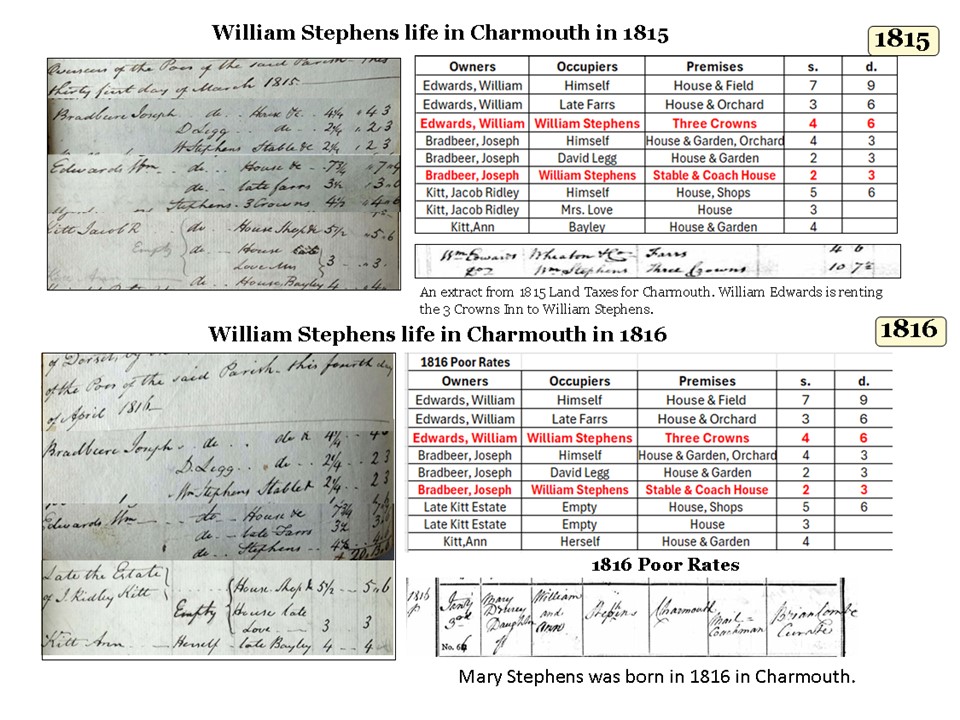 William Stephens life in Charmouth in 1815
1815
Overseers of the Poor of the said Parish this
thirty first day of March 1815.
Bradbeere Joseph do. House &c. 4¼ 4 3
D. Legg do 2¼ 2 3
W Stephens Stable & 2¼ 2 3
Edwards Wm do. House & 7¾
do. late Farrs 3½ 3 6
Stephens 3 Crowns 4½ 4 6
Kitt Jacob R do House Shop & 5½ 5 6
Empty do House late
Love Mrs 3 3
do House, Bayley 4 4
Owners Occupiers Premises s. d.
Edwards, William Himself House & Field 7 9
Edwards, William Late Farrs House & Orchard 3 6
Edwards, William William Stephens Three Crowns 4 6
Bradbeer, Joseph Himself House & Garden, Orchard 4 3
Bradbeer, Joseph David Legg House & Garden 2 3
Bradbeer, Joseph William Stephens Stable & Coach House 2 3
Kitt, Jacob Ridley Himself House, Shops 5 6
Kitt, Jacob Ridley Mrs. Love House 3
Kitt,Ann Bayley House & Garden 4
Wm Edwards Wheaton & Co Farrs 4 6
Do Wm Stephens Three Crowns 10 7½
An extract from 1815 Land Taxes for Charmouth. William Edwards is renting
the 3 Crowns Inn to William Stephens.
William Stephens life in Charmouth in 1816
1816
of Dorset, by
of the Poor of the said Parish this fourth day
of April 1816
Bradbeere Joseph do do & 4¼ 4
D. Legg do 2¼ 2 3
Wm Stephens Stable & 2¼ 2 3
Edwards Wm do House & 7¾
do late Farrs 3½
do Stephens 4½
Late the Estate
of J. Ridley Kitt
House Shop & 5½ 5 6
Empty House late
Love 3 3
Kitt Ann Herself late Bayley 4 4
1816 Poor Rates
Owners Occupiers Premises s. d.
Edwards, William Himself House & Field 7 9
Edwards, William Late Farrs House & Orchard 3 6
Edwards, William William Stephens Three Crowns 4 6
Bradbeer, Joseph Himself House & Garden, Orchard 4 3
Bradbeer, Joseph David Legg House & Garden 2 3
Bradbeer, Joseph William Stephens Stable & Coach House 2 3
Late Kitt Estate Empty House, Shops 5 6
Late Kitt Estate Empty House 3
Kitt,Ann Herself House & Garden 4
1816 Poor Rates
1816
Mary
Daughter
of
William
and
Ann
Charmouth
Mail
Coachman
Brian Combe
Curate
No. 64
Mary Stephens was born in 1816 in Charmouth.